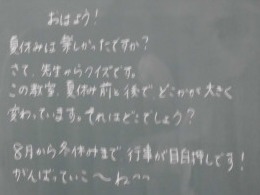 おはよう！
夏休みは楽しかったですか？
さて、先生からクイズです。
この教室、夏休み前と後で、どこかが大きく
変わっています。それはどこでしょう？
8月から冬休みまで、行事が目白押しです！
がんばっていこ〜ね〜